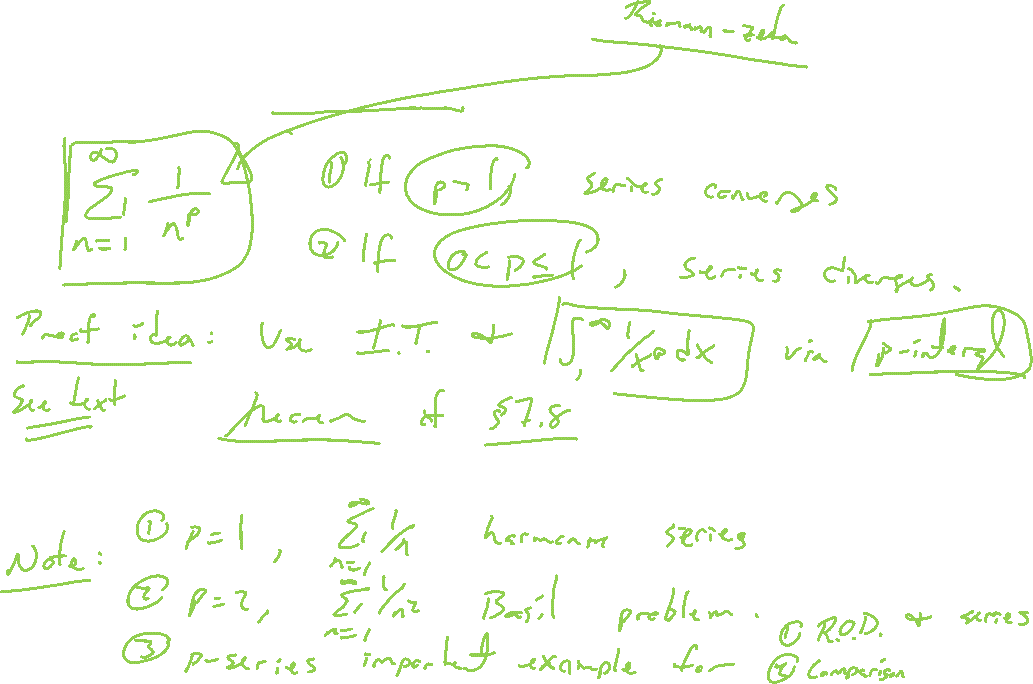 Riemann-zeta
∞ ∑ n=1 1/n^p ① If p>1, series converges
② If 0<p≤1, series diverges.
Proof idea: Use I.T. & ∫₁^∞ 1/x^p dx via p-integral
See text theorem of §7.8
Note: ① p=1, ∞ ∑ n=1 1/n harmonic series
② p=2, ∞ ∑ n=1 1/n² Basil problem. ① R.O.D. of series
③ p-series important example for ② Comparison